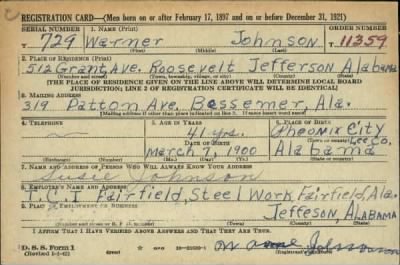 REGISTRATION CARD—(Men born on or after February 17, 1897 and on or before December 31, 1921)
SERIAL NUMBER 1. NAME (Print) ORDER NUMBER
T 729 Warmer Johnson T 11359
(First) (Middle) (Last)
2. PLACE OF RESIDENCE (Print)
512 Grant, Ave. Roosevelt Jefferson Alabama
(Number and street) (Town, township, village, or city) (County) (State)
[THE PLACE OF RESIDENCE GIVEN ON THE LINE ABOVE WILL DETERMINE LOCAL BOARD
JURISDICTION; LINE 2 OF REGISTRATION CERTIFICATE WILL BE IDENTICAL]
3. MAILING ADDRESS
319 Patton Ave. Bessemer, Ala.
[Mailing address if other than place indicated on line 2. If same insert word same]
4. TELEPHONE 5. AGE IN YEARS 6. PLACE OF BIRTH
41 yrs. Pheonix City
DATE OF BIRTH Lee Co.
March 7, 1900 Alabama
(Exchange) (Number) (Mo.) (Day) (Yr.) (State or country)
7. NAME AND ADDRESS OF PERSON WHO WILL ALWAYS KNOW YOUR ADDRESS
Susie Johnson
8. EMPLOYER'S NAME AND ADDRESS
T.C.I Fairfield, Steel Work, Fairfield, Ala.
9. PLACE OF EMPLOYMENT OR BUSINESS
Jeffeson, ALABAMA
(Number and street or R. F. D. number) (Town) (County) (State)
I AFFIRM THAT I HAVE VERIFIED ABOVE ANSWERS AND THAT THEY ARE TRUE.
D. S. S. Form 1